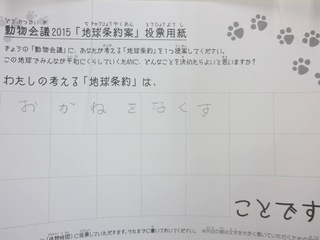 動物会議2015「地球条約案」投票用紙
きょうの「動物会議」に、あなたが考える「地球条約」を1つ提案してください。
この地球でみんなが平和にくらしていくために、どんなことを決めたらよいと思いますか?
わたしの考える「地球条約」は、
おかねをなくす
ことです